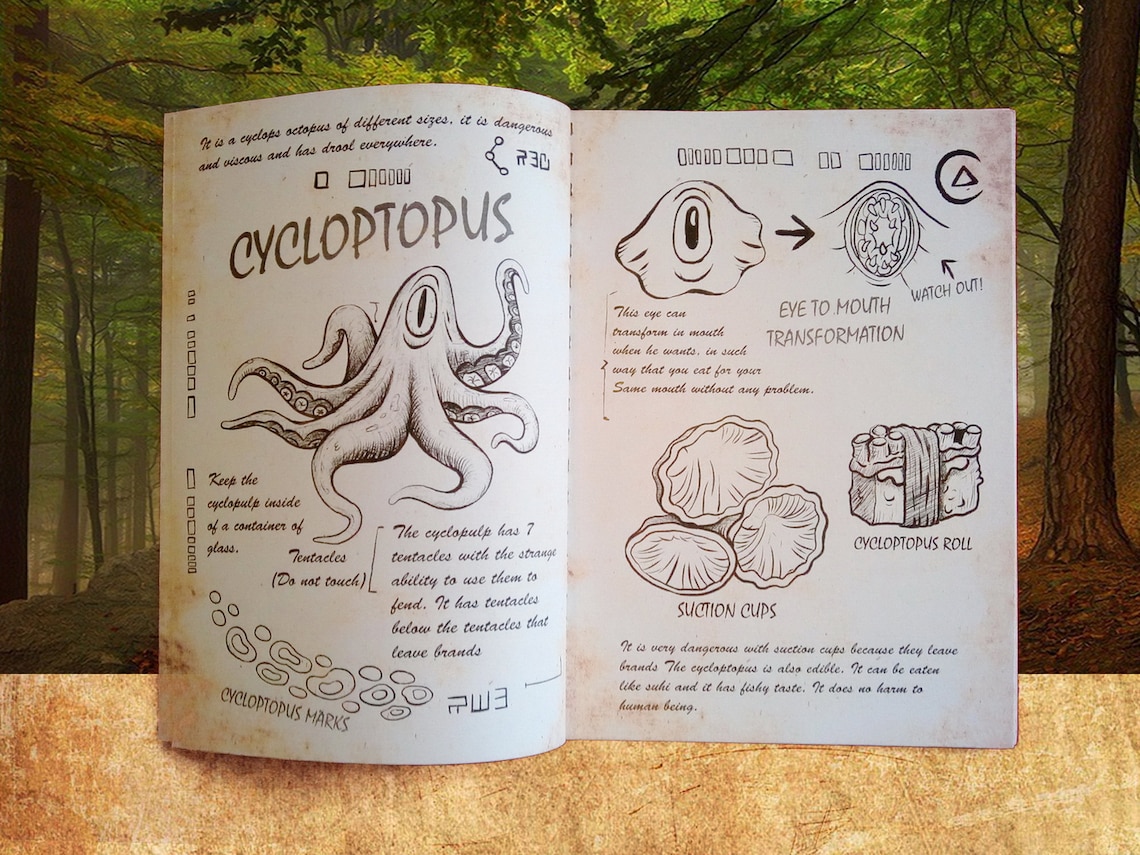 It is a cyclops octopus of different sizes, it is dangerous
and viscous and has drool everywhere.
CYCLOPTOPUS
Keep the
cyclopulp inside
of a container of
glass.
Tentacles
(Do not touch)
The cyclopulp has 7
tentacles with the strange
ability to use them to
fend. It has tentacles
below the tentacles that
leave brands
CYCLOPTOPUS MARKS
WATCH OUT!
EYE TO MOUTH
TRANSFORMATION
This eye can
transform in mouth
when he wants, in such
way that you eat for your
Same mouth without any problem.
SUCTION CUPS
CYCLOPTOPUS ROLL
It is very dangerous with suction cups because they leave
brands The cycloptopus is also edible. It can be eaten
like suhi and it has fishy taste. It does no harm to
human being.